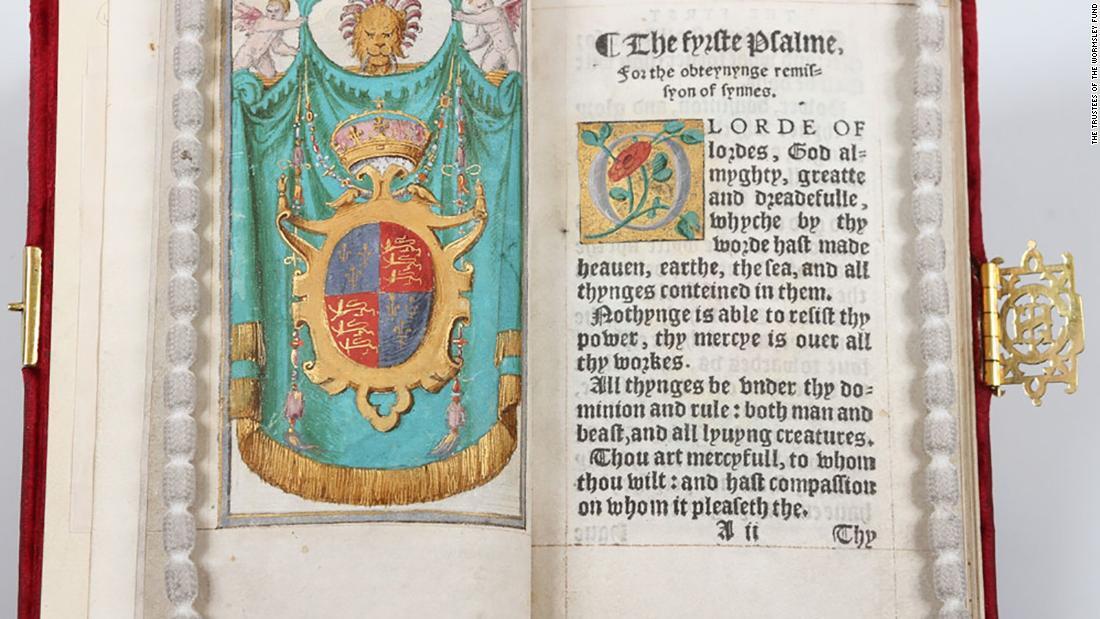 ¶ The fyrste Psalme,
For the obteynynge remis-
syon of synnes.
O LORDE OF
lordes, God al-
myghty, greatte
and dreadefulle,
whyche by thy
worde hast made
heauen, earthe, the sea, and all
thynges conteined in them.
Nothynge is able to resist thy
power, thy mercye is ouer all
thy workes.
All thynges be vnder thy do-
minion and rule: both man and
beast, and all lyuyng creatures.
Thou art mercyfull, to whom
thou wilt: and hast compassion
on whom it pleaseth the.
A ii Thy
THE TRUSTEES OF THE WORMSLEY FUND